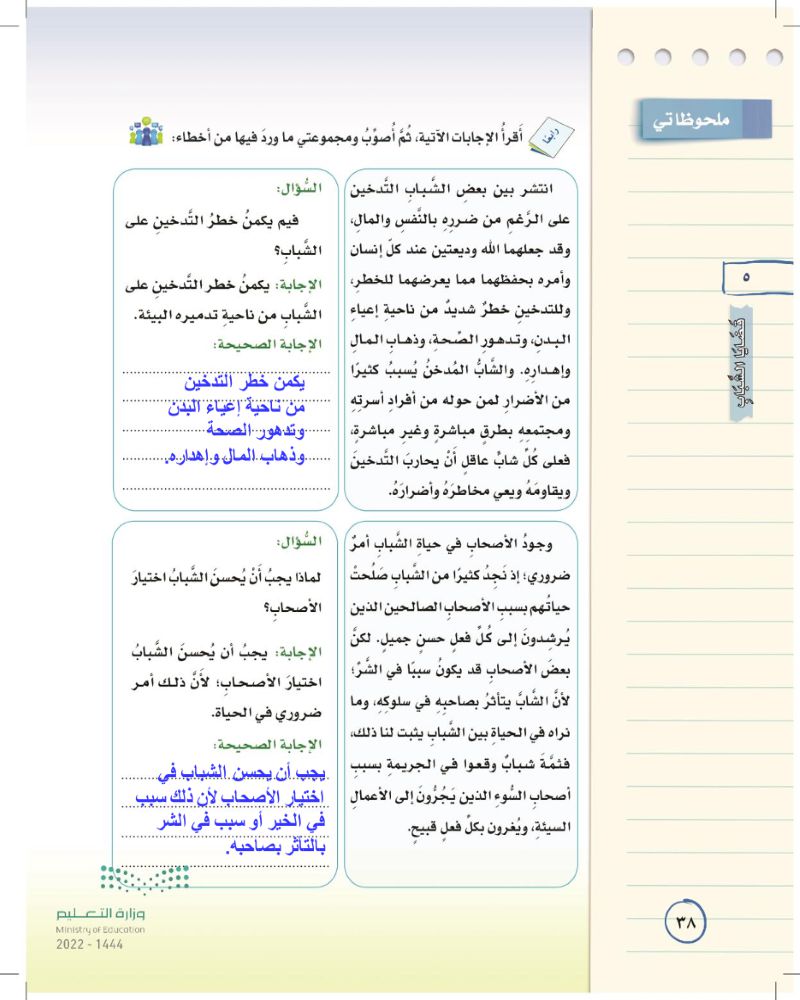 ملحوظاتي
رابعًا
أَقرأُ الإجابات الآتية، ثُمَّ أُصوِّبُ ومجموعتي ما وردَ فيها من أخطاء:
انتشر بين بعضِ الشَّبابِ التَّدخين
على الرَّغمِ من ضررِه بالنَّفسِ والمالِ،
وقد جعلهما الله وديعتين عند كلّ إنسان
وأمره بحفظهما مما يعرضهما للخطرِ،
وللتدخينِ خطرٌ شديدٌ من ناحيةِ إعياءِ
البدنِ، وتدهورِ الصّحة، وذهابِ المالِ
وإهدارِه. والشَّابُّ المُدخنُ يُسببُ كثيرًا
من الأضرارِ لمن حوله من أفرادِ أسرتِهِ
ومجتمعِهِ بطرقٍ مباشرةٍ وغيرِ مباشرةٍ،
فعلى كُلِّ شابٍّ عاقلٍ أَنْ يحاربَ التَّدخينَ
ويقاومَهُ ويعي مخاطرَهُ وأضرارَهُ.
السُّؤال:
فيم يكمنُ خطرُ التَّدخينِ على
الشَّبابِ؟
الإجابة: يكمنُ خطر التَّدخينِ على
الشَّبابِ من ناحيةِ تدميره البيئة.
الإجابة الصحيحة:
يكمن خطر التدخين
من ناحية إعياء البدن
وتدهور الصحة
وذهاب المال وإهداره.
وجودُ الأصحابِ في حياةِ الشَّبابِ أمرٌ
ضروري؛ إذ نَجِدُ كثيرًا من الشَّبابِ صَلُحتْ
حياتُهم بسببِ الأصحابِ الصالحين الذين
يُرشِدونَ إلى كُلِّ فعلٍ حسنٍ جميلٍ. لكنَّ
بعضَ الأصحابِ قد يكونُ سببًا في الشَّرِّ؛
لأنَّ الشَّابَّ يتأثرُ بصاحبِهِ في سلوكِهِ، وما
نراه في الحياةِ بين الشَّبابِ يثبت لنا ذلك،
فثمَّةَ شبابٌ وقعوا في الجريمةِ بسببِ
أصحابِ السُّوءِ الذين يَجُرُّونَ إلى الأعمالِ
السيئةِ، ويُغرون بكلِّ فعلٍ قبيحٍ.
السُّؤال:
لماذا يجبُ أَنْ يُحسنَ الشَّبابُ اختيارَ
الأصحابِ؟
الإجابة: يجبُ أن يُحسنَ الشَّبابُ
اختيارَ الأصحابِ؛ لأَنَّ ذلك أمر
ضروري في الحياة.
الإجابة الصحيحة:
يجب أن يحسن الشباب في
اختيار الأصحاب لأن ذلك سبب
في الخير أو سبب في الشر
بالتأثر بصاحبه.
٥
قَضَايَا الشَّبَابِ
وزارة التعليم
Ministry of Education
2022 - 1444
٣٨